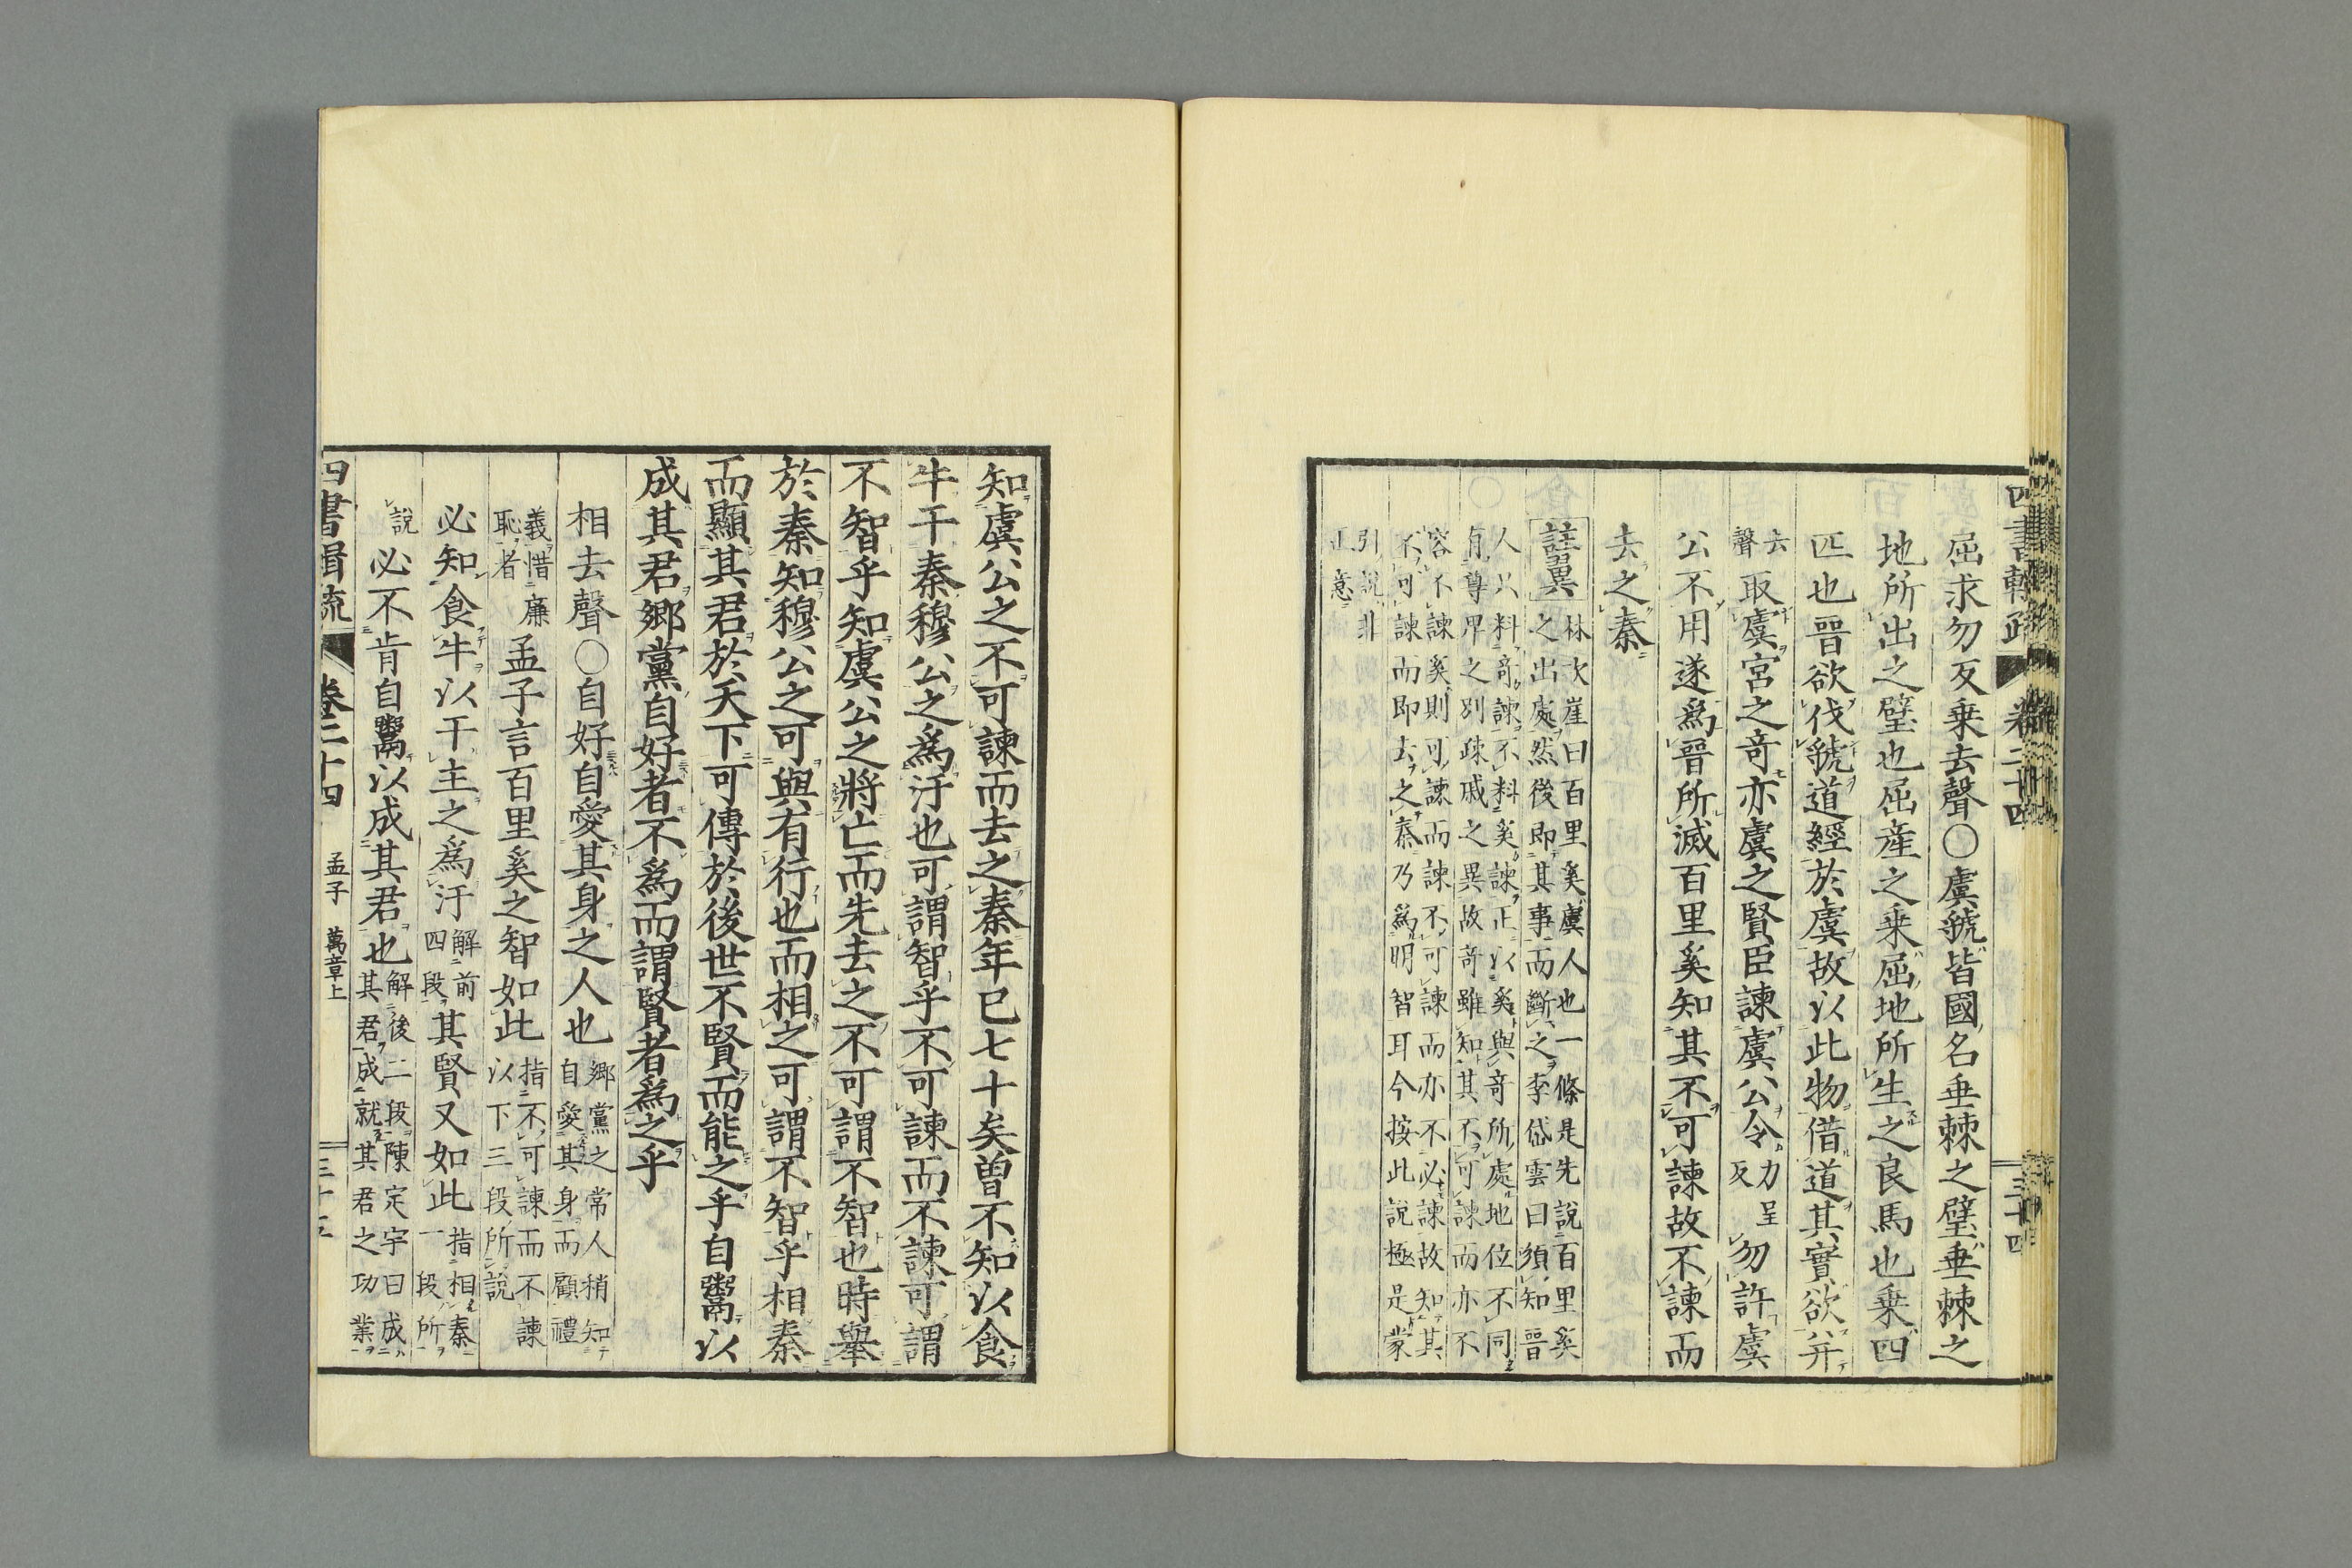 屈求勿反乗去聲○虞虢皆國名垂棘之璧垂棘之
地所出之璧也屈産之乗屈地所生之良馬也乗四
匹也晋欲伐虢道經於虞故以此物借道其實欲并
去聲取虞宮之竒亦虞之賢臣諫虞公令力呈反勿許虞
公不用遂爲晋所滅百里奚知其不可諫故不諫而
去之秦
註翼
林次崖曰百里奚虞人也一條是先說百里奚
之出處然後即其事而斷之李岱雲曰須知晋
人只料竒諫不料奚諫正以奚與竒所處地位不同
有尊卑之別疎戚之異故竒雖知其不可諫而亦不
容不諫奚則可諫而諫不可諫而亦不必諫故知其
不可諫而即去之秦乃爲明智耳今按此說極是蒙
引說非
正意
四書輯疏 卷二十四 三十四
知虞公之不可諫而去之秦年已七十矣曽不知以食
牛干秦穆公之爲汙也可謂智乎不可諫而不諫可謂
不智乎知虞公之將亡而先去之不可謂不智也時舉
於秦知穆公之可與有行也而相之可謂不智乎相秦
而顯其君於天下可傳於後世不賢而能之乎自鬻以
成其君郷黨自好者不爲而謂賢者爲之乎
相去聲○自好自愛其身之人也郷黨之常人稍知自愛其身而顧禮
義惜廉恥者孟子言百里奚之智如此指不可諫而不諫以下三段所說
必知食牛以干主之爲汙解前四段其賢又如此指相秦一段所
說必不肯自鬻以成其君也解後二段陳定宇曰成其君成就其君之功業
四書輯疏 卷二十四 孟子 萬章上 三十五